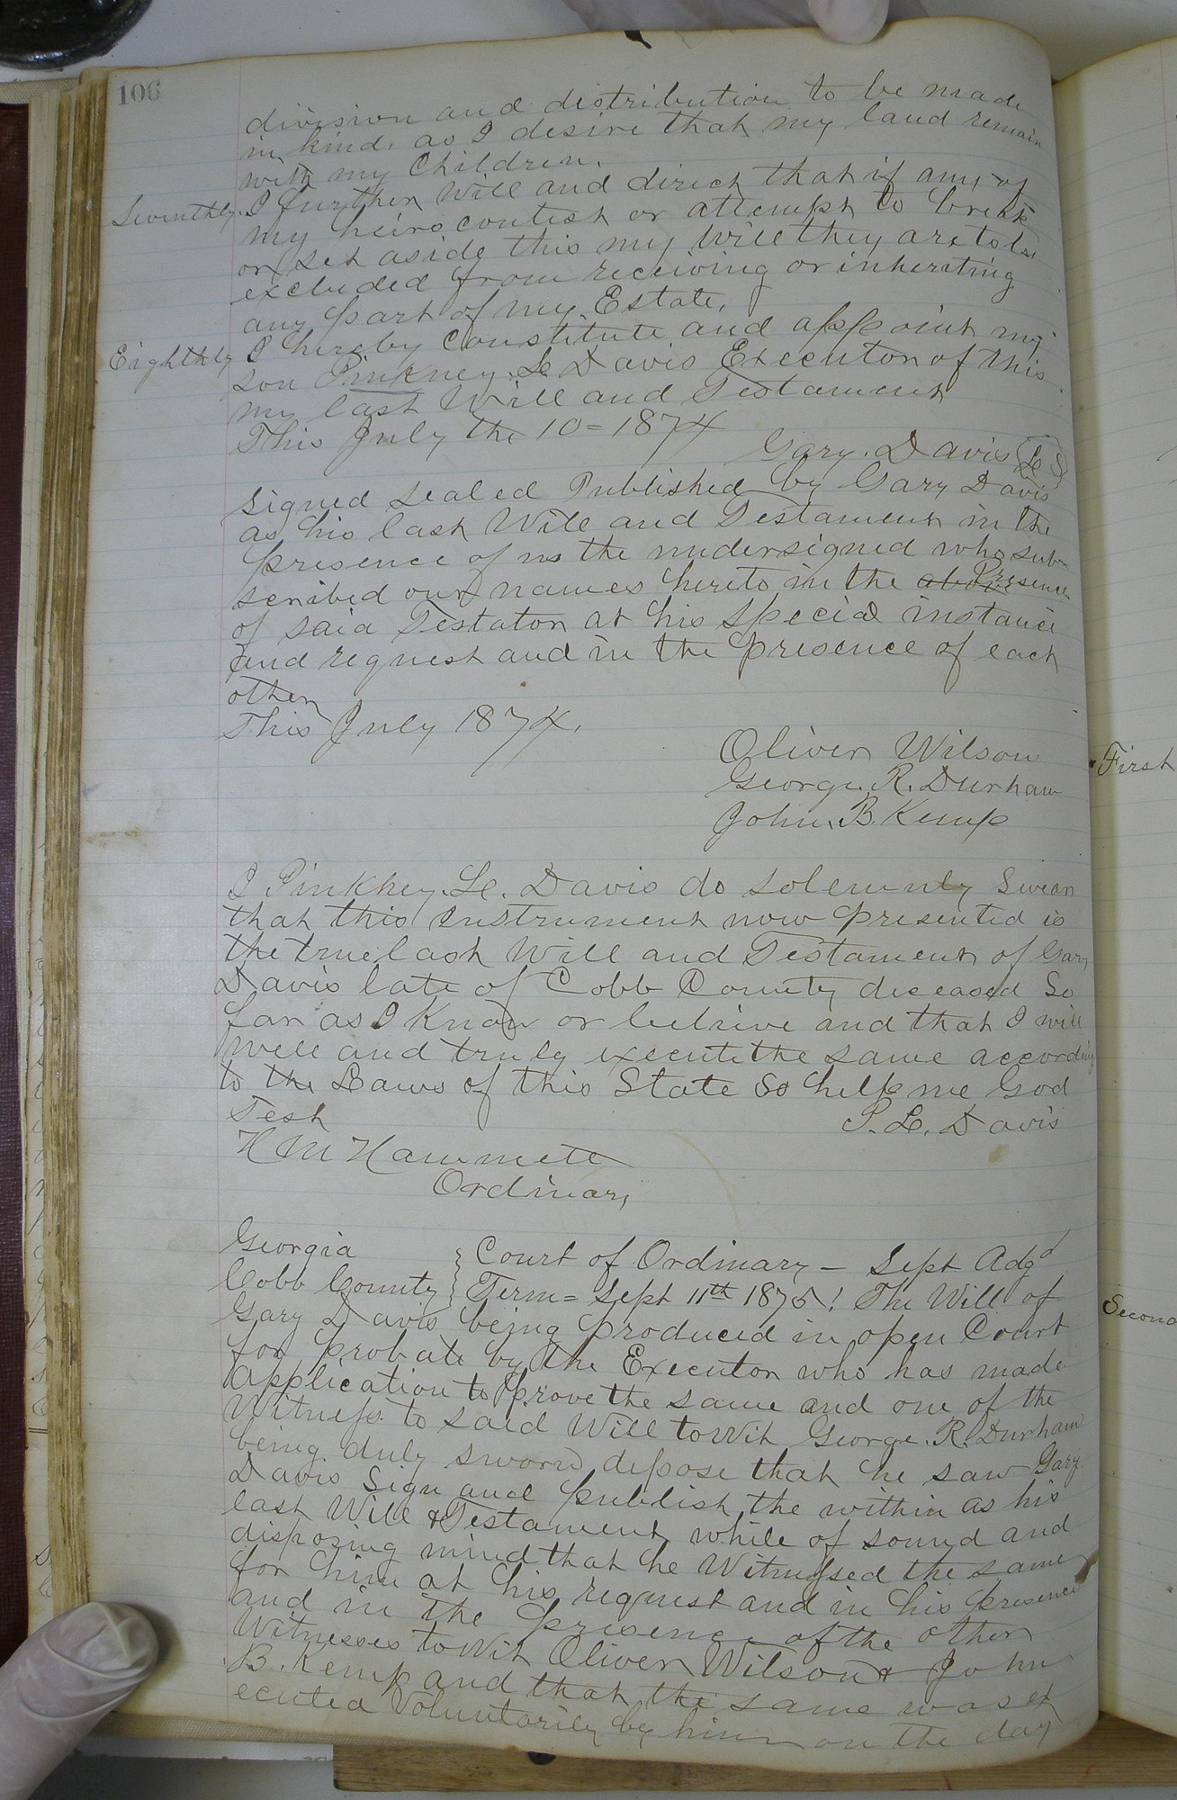 106
division and distribution to be made
in kind. as I desire that my land remain
with my Children.
Seventhly. I further Will and direct that if any of
my heirs contest or attempt to break
or set aside this my Will they are to be
excluded from receiving or inheriting
any part of my Estate.
Eighthly I hereby Constitute and appoint my
son Pinkney L. Davis Executor of this
my last Will and Testament
This July the 10 = 1874
Gary. Davis (L S)
Signed Sealed Published by Gary Davis
as his last Will and Testament in the
presence of us the undersigned who sub-
scribed our names hereto in the above Presence
of said Testator at his Special instance
and request and in the presence of each
other
This July 1874.
Oliver Wilson
George. R. Durham
John. B. Kemp
I Pinkney. L. Davis do Solemnly Swear
that this Instrument now presented is
the true last Will and Testament of Gary
Davis late of Cobb County deceased So
far as I Know or beleive and that I will
well and truly execute the same according
to the Laws of this State So help me God
Test
P. L. Davis
H M Hammett
Ordinary
Georgia } Court of Ordinary – Sept Adjd
Cobb County } Term = Sept 11th 1875! The Will of
Gary Davis being produced in open Court
for probate by the Executor who has made
Application to Prove the same and one of the
Witness to said Will to Wit George. R. Durham
being duly sworn depose that he saw Gary
Davis Sign and publish the within as his
last Will & Testament while of sound and
disposing mind that he Witnessed the same
for him at his request and in his presence
and in the presence of the other
Witnesses to Wit Oliver Wilson & John
B. Kemp and that the same was ex
ecuted Voluntarily by him on the day
First
Second